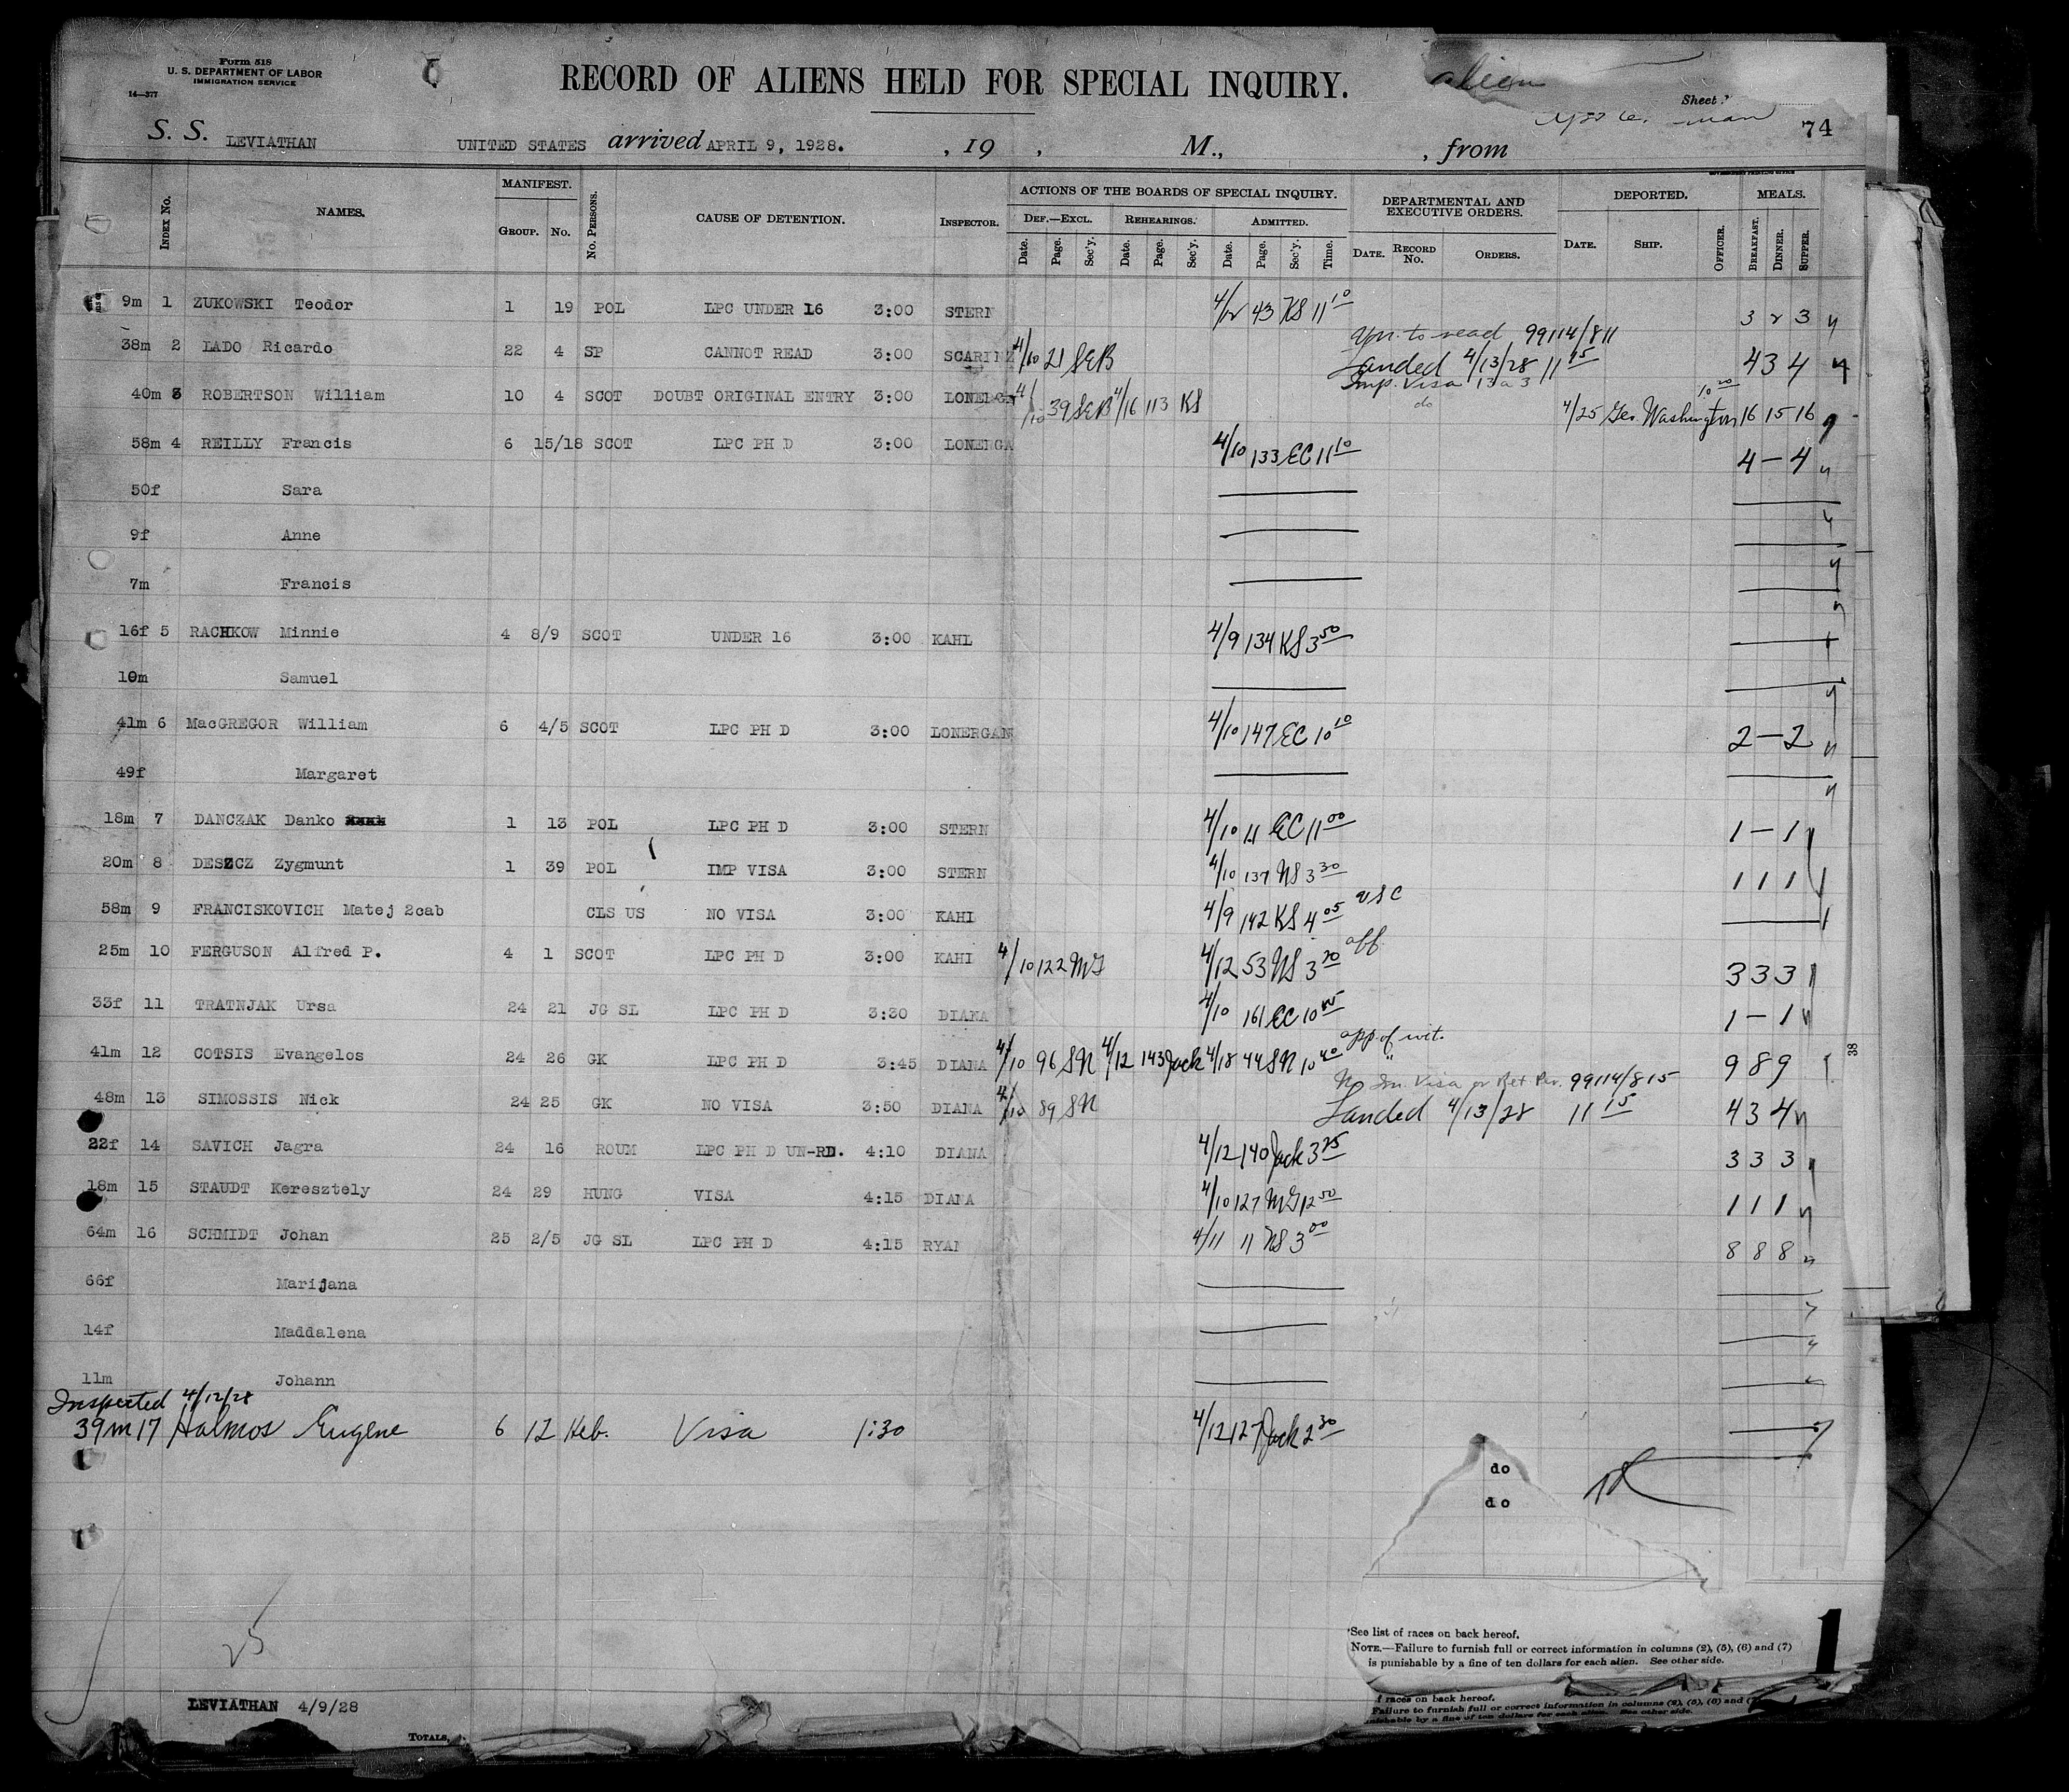 Form 518
U. S. DEPARTMENT OF LABOR
IMMIGRATION SERVICE
14—377
RECORD OF ALIENS HELD FOR SPECIAL INQUIRY.
alien
Sheet
man
74
S. S. LEVIATHAN UNITED STATES arrived APRIL 9, 1928. , 19 , M., , from
Index No. NAMES. MANIFEST. GROUP. No. No. PERSONS. CAUSE OF DETENTION. INSPECTOR. ACTIONS OF THE BOARDS OF SPECIAL INQUIRY. DEF.—EXCL. REHEARINGS. ADMITTED. DEPARTMENTAL AND EXECUTIVE ORDERS. DEPORTED. MEALS.
Date. Page. Sec'y. Date. Page. Sec'y. Date. Page. Sec'y. Time. DATE. RECORD No. ORDERS. DATE. SHIP. OFFICER. BREAKFAST. DINNER. SUPPER.
9m 1 ZUKOWSKI Teodor 1 19 POL LPC UNDER 16 3:00 STERN 43 KS 11 10 3 2 3
to read 99114/811
38m 2 LADO Ricardo 22 4 SP CANNOT READ 3:00 SCARINZ 4/10 21 SEB Landed 4/13/28 11 15 4 3 4
Imp. Visa 13 a 3
40m 3 ROBERTSON William 10 4 SCOT DOUBT ORIGINAL ENTRY 3:00 4/10 39 SEB 4/16 113 KS do 4/25 Geo. Washington 10 20 16 15 16
58m 4 REILLY Francis 6 15/18 SCOT LPC PH D 3:00 LONERGA 4/10 133 EC 11 10 4 — 4
50f Sara
9f Anne
7m Francis
16f 5 RACHKOW Minnie 4 8/9 SCOT UNDER 16 3:00 KAHL 4/9 134 KS 3 50
10m Samuel
41m 6 MacGREGOR William 6 4/5 SCOT LPC PH D 3:00 LONERGAN 4/10 147 EC 10 10 2 — 2
49f Margaret
18m 7 DANCZAK Danko 1 13 POL LPC PH D 3:00 STERN 4/10 11 EC 11 00 1 — 1
20m 8 DESZCZ Zygmunt 1 39 POL IMP VISA 3:00 STERN 4/10 137 NS 3 30 1 1 1
58m 9 FRANCISKOVICH Matej 2cab CLS US NO VISA 3:00 KAHL 4/9 142 KS 4 05 USC
25m 10 FERGUSON Alfred P. 4 1 SCOT LPC PH D 3:00 KAHL 4/10 122 MG 4/12 53 NS 3 20 aff. 3 3 3
33f 11 TRATNJAK Ursa 24 21 JG SL LPC PH D 3:30 DIANA 4/10 161 EC 10 1 — 1
41m 12 COTSIS Evangelos 24 26 GK LPC PH D 3:45 DIANA 4/10 96 SN 4/12 143 Jack 4/18 44 SN 10 40 app. of wit. 9 8 9
No Im. Visa or Ret Per. 99114/815
48m 13 SIMOSSIS Nick 24 25 GK NO VISA 3:50 DIANA 4/10 89 SN Landed 4/13/28 11 15 4 3 4
22f 14 SAVICH Jagra 24 16 ROUM LPC PH D UN-RD. 4:10 DIANA 4/12 140 Jack 3 25 3 3 3
18m 15 STAUDT Keresztely 24 29 HUNG VISA 4:15 DIANA 4/10 127 MG 12 50 1 1 1
64m 16 SCHMIDT Johan 25 2/5 JG SL LPC PH D 4:15 RYAN 4/11 11 NS 3 00 8 8 8
66f Marijana
14f Maddalena
11m Johann
Inspected 4/12/28
39m 17 Halmos Eugene 6 12 Heb. Visa 1:30 4/12 127 Jack 2 30
do
do
38
25
*See list of races on back hereof.
NOTE.—Failure to furnish full or correct information in columns (2), (5), (6) and (7)
is punishable by a fine of ten dollars for each alien. See other side.
1
f races on back hereof.
Failure to furnish full or correct information in columns (2), (5), (6) and (7)
unishable by a fine of ten dollars for each alien. See other side.
LEVIATHAN 4/9/28
TOTALS,